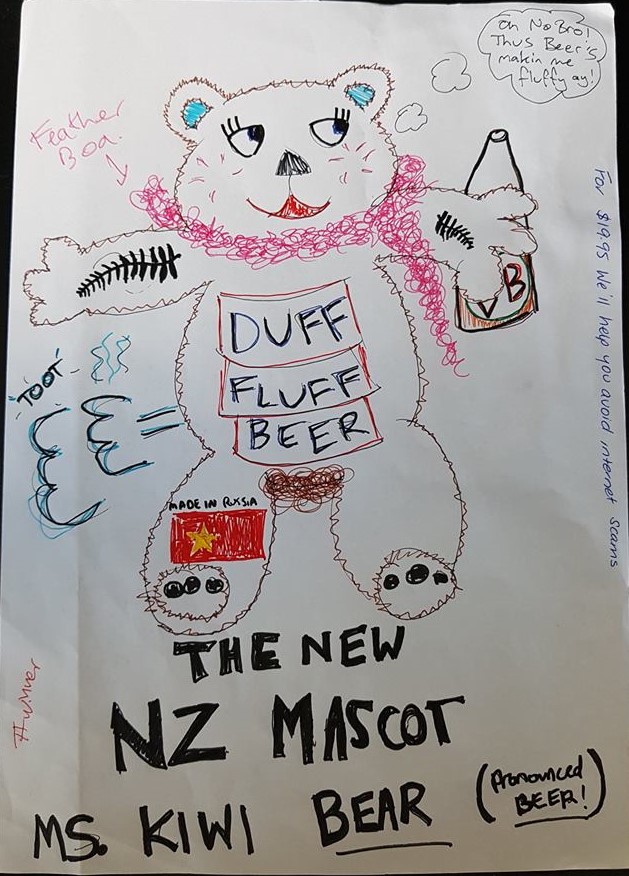 Oh No Bro!
Thus Beer's
makin me
fluffy ay!
Feather
Boa.
VB
DUFF
FLUFF
BEER
TOOT
MADE IN RUSSIA
For $19.95 We'll help you avoid internet scams
THE NEW
NZ MASCOT
MS. KIWI BEAR
(Pronounced
BEER!)